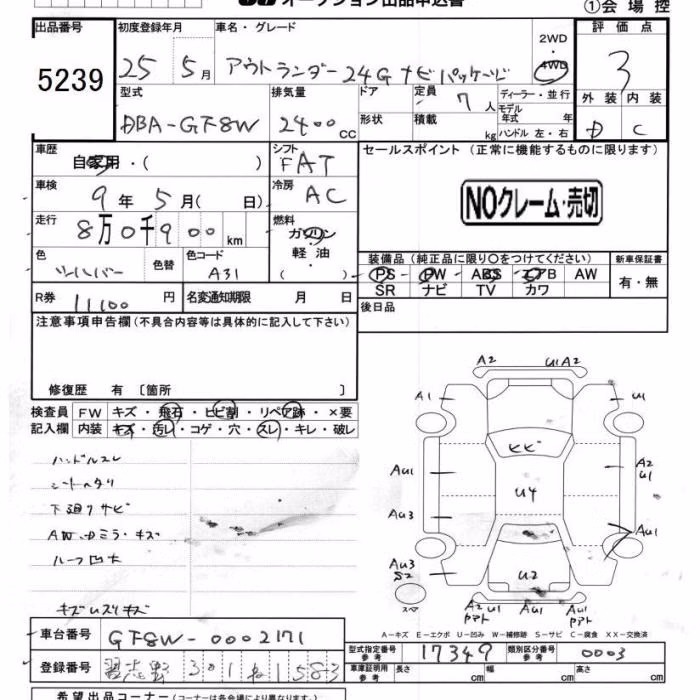 オークション出品申込書
①会場控
出品番号 初度登録年月 車名・グレード 評価点
5239 25 5月 アウトランダー24Gナビパッケージ 2WD 4WD 3
型式 排気量 ドア 定員 7人 ディーラー・並行 外装 内装
モデル年式 年
DBA-GF8W 2400cc 形状 積載 kg ハンドル 左・右 D C
車歴 自家用・( ) シフト FAT セールスポイント (正常に機能するものに限ります)
車検 9年5月( 日) 冷房 AC
NOクレーム・売切
走行 8万0千900km 燃料 ガソリン・軽油・( )
色 シルバー 色替 色コード A31
装備品 (純正品に限り○をつけてください) 新車保証書
PS PW ABS エアB AW 有・無
SR ナビ TV カワ
R券 11100円 名変通知期限 月 日 後日品
注意事項申告欄 (不具合内容等は具体的に記入して下さい)
修復歴 有 〔箇所 〕
検査員 FW キズ・飛石・ヒビ割・リペア跡・×要
記入欄 内装 キズ・汚レ・コゲ・穴・スレ・キレ・破レ
ハンドルスレ
シートヘタリ
下廻りサビ
AW.ドミラ・キズ
ルーフ凹大
A2 U1 A2
A1 U1
ヒビ
AU1 A2 U1
U4
AU3 AU1
AU3 S2
U2
スペア
A2 U1 アト AU1 AU1 アト
A-キズ E-エクボ U-凹み W-補修跡 S-サビ C-腐食 XX-交換済
車台番号 GF8W-0002171
型式指定番号 参考 17349 類別区分番号 参考 0003
登録番号 習志野 301 ね 1583
車庫証明用 参考 長さ cm 幅 cm 高さ cm
希望出品コーナー (コーナーは各会場により異なります)